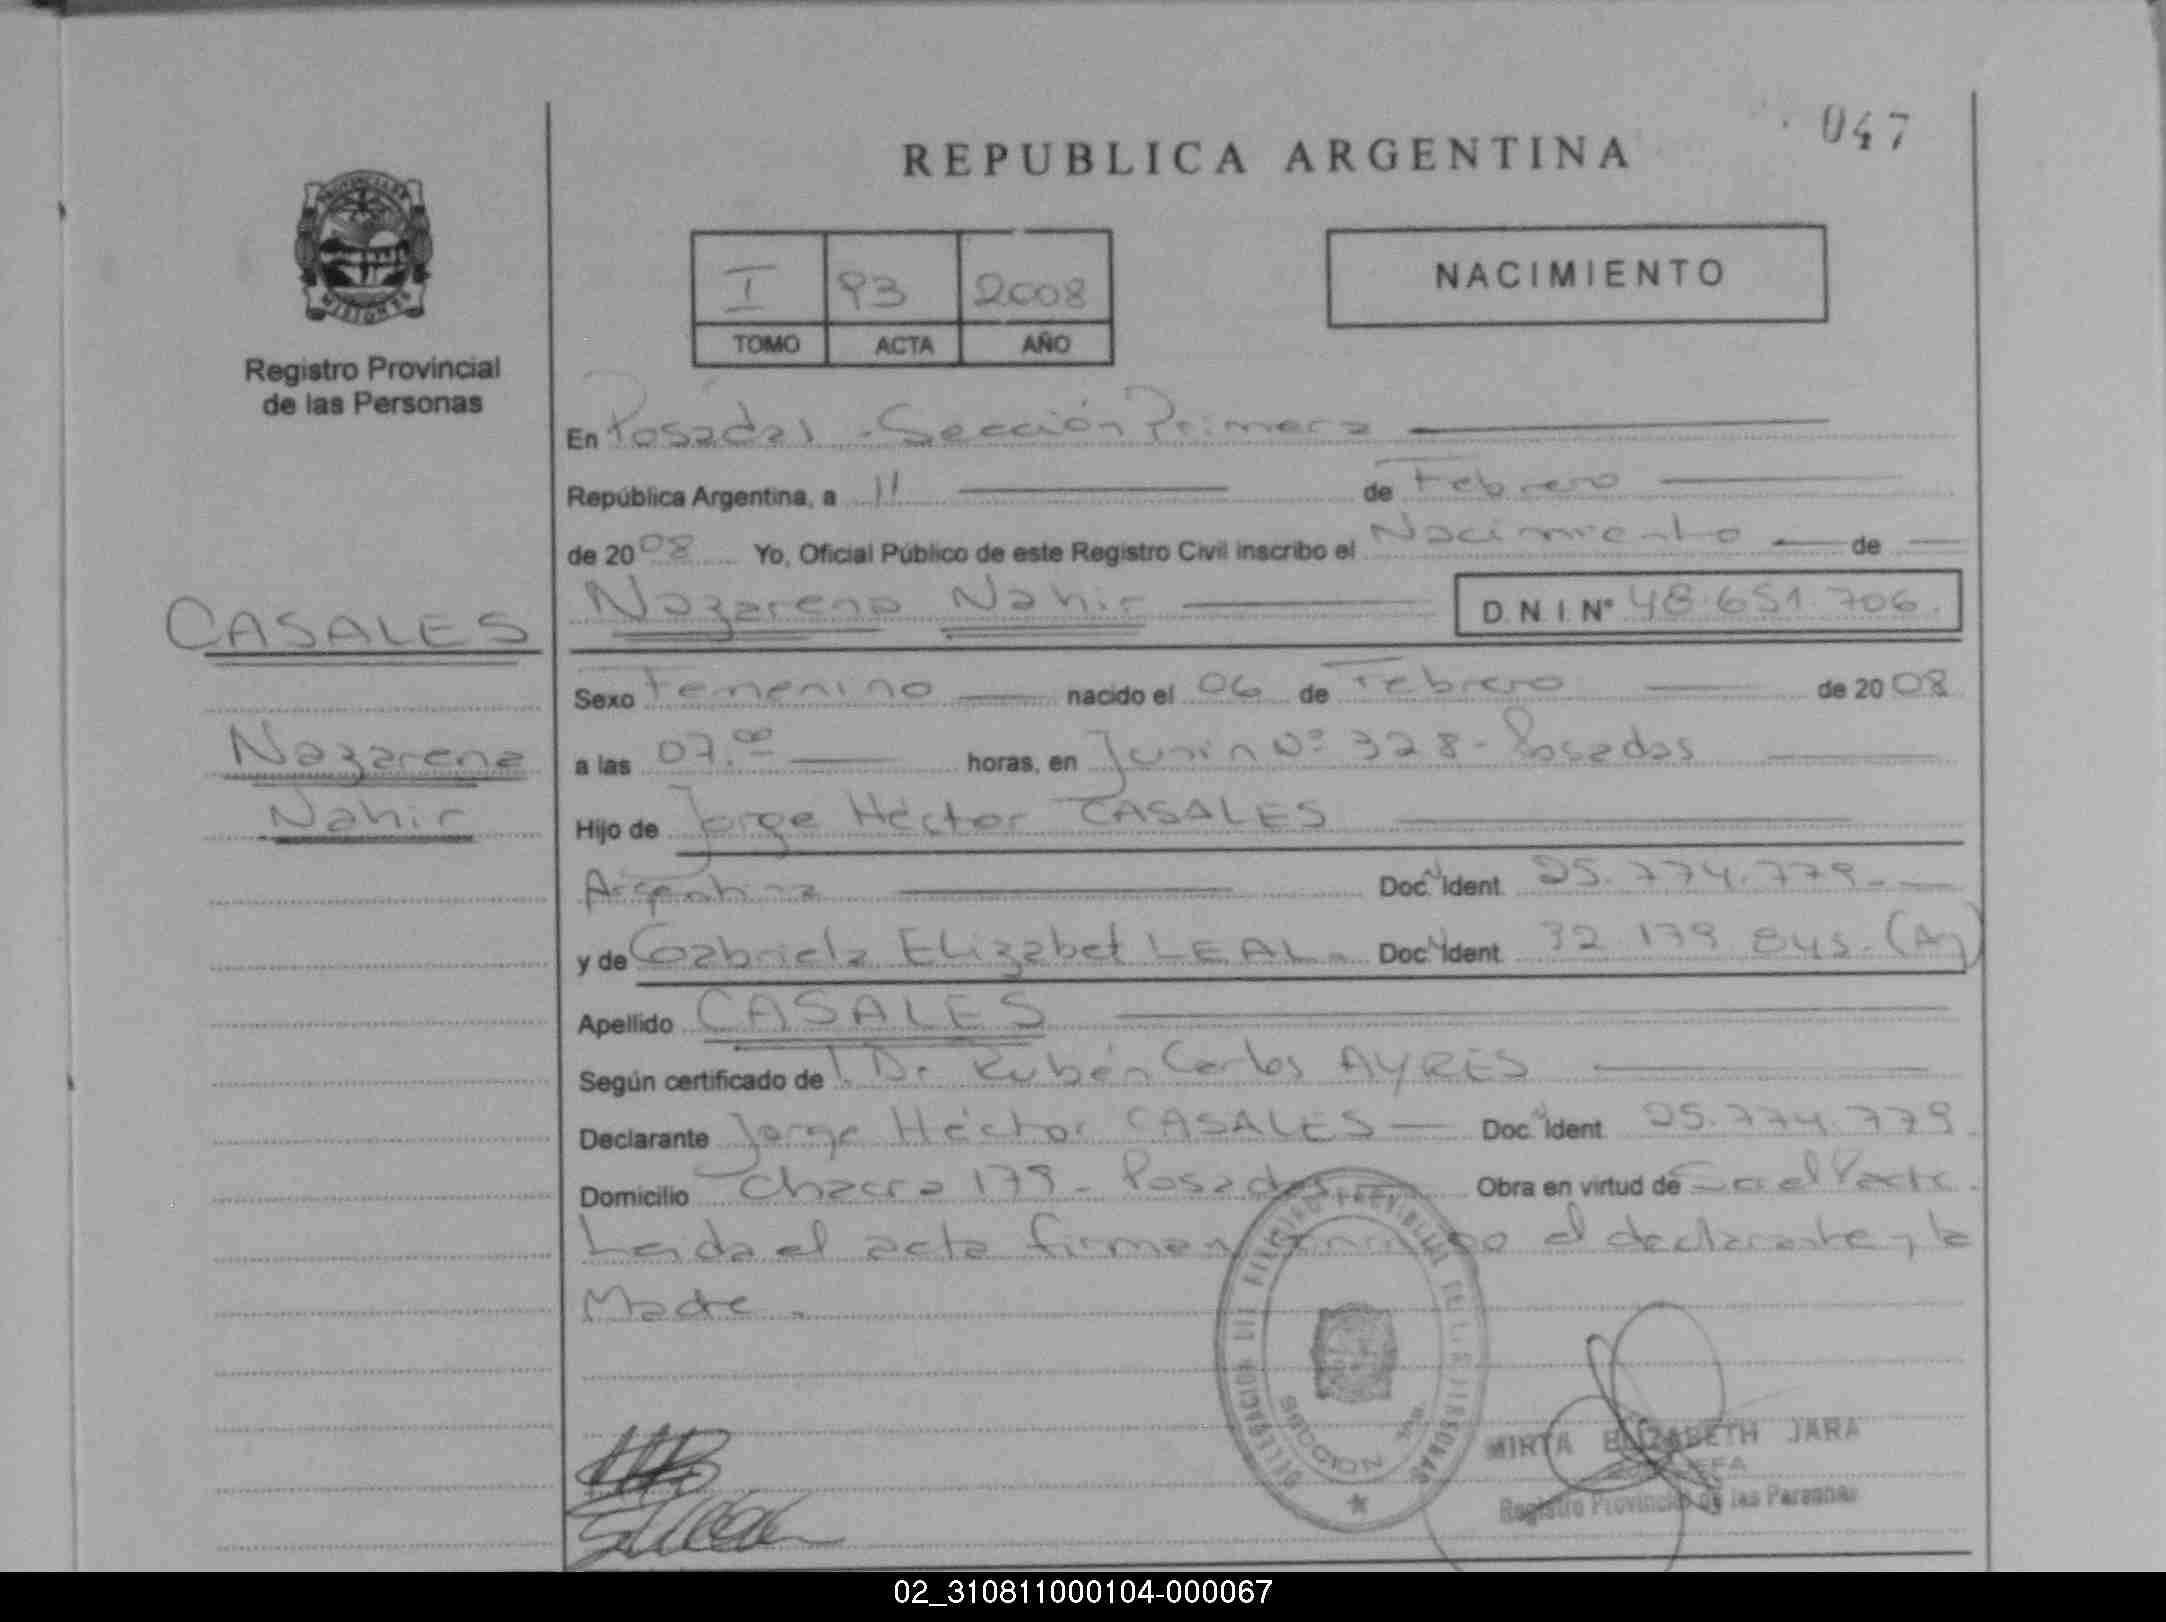 047
REPUBLICA ARGENTINA
PROVINCIA DE
MISIONES
Registro Provincial
de las Personas
I 93 2008
TOMO ACTA AÑO
NACIMIENTO
En Posadas - Sección Primera
República Argentina, a 11 de Febrero
de 2008 Yo, Oficial Público de este Registro Civil inscribo el Nacimiento de
CASALES
Nazarena Nahir
Nazarena Nahir D.N.I. Nº 48.651.706.
Sexo Femenino nacido el 06 de Febrero de 2008
a las 07.00 horas, en Junín Nº 328 - Posadas
Hijo de Jorge Héctor CASALES
Argentina Doc. Ident. 25.774.779.-
y de Gabriela Elizabet LEAL. Doc. Ident. 32 179 845. (Arg)
Apellido CASALES
Según certificado de l. Dr. Rubén Carlos AYRES
Declarante Jorge Héctor CASALES Doc. Ident. 25.774.779
Domicilio Chacra 179 - Posadas Obra en virtud de
Leida el acta firman conmigo el declarante y la
Madre.
DELEGACION DEL REGISTRO PROVINCIAL DE LAS PERSONAS
SECCION
MIRTA ELIZABETH JARA
JEFA
Registro Provincial de las Personas
02_310811000104-000067